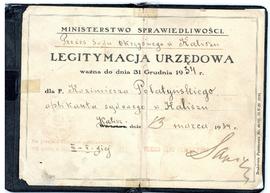 MINISTERSTWO SPRAWIEDLIWOŚCI.
Prezes Sądu Okręgowego w Kaliszu
LEGITYMACJA URZĘDOWA
ważna do dnia 31 Grudnia 1934
dla P. Kazimierza Połatyńskiego
aplikanta sądowego w Kaliszu
Kalisz, 13 marca 1934 r.